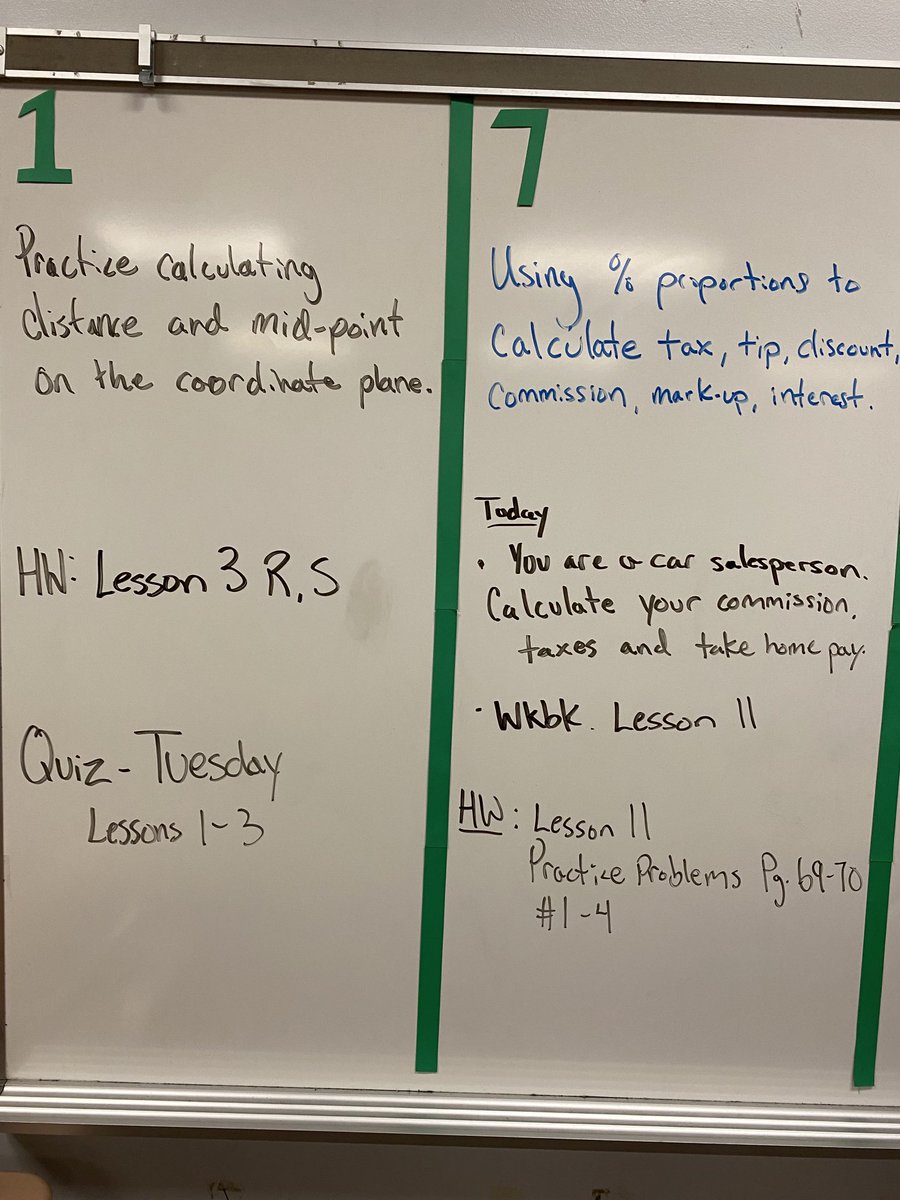 1
Practice calculating
distance and mid-point
on the coordinate plane.
HW: Lesson 3 R, S
Quiz - Tuesday
Lessons 1-3
7
Using % proportions to
Calculate tax, tip, discount,
Commission, mark-up, interest.
Today
· You are a car salesperson.
Calculate your commission,
taxes and take home pay.
· Wkbk. Lesson 11
HW: Lesson 11
Practice Problems Pg. 69-70
#1-4